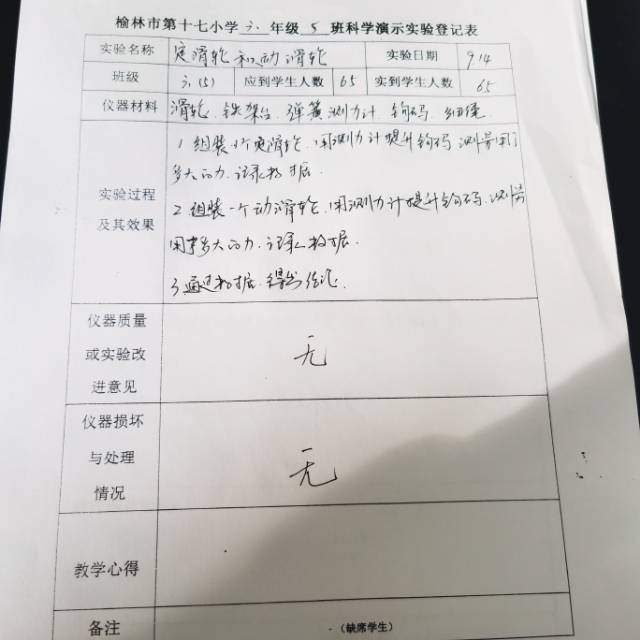 榆林市第十七小学 六 年级 5 班科学演示实验登记表
实验名称 定滑轮和动滑轮 实验日期 9.14
班级 六(5) 应到学生人数 65 实到学生人数 65
仪器材料 滑轮、铁架台、弹簧测力计、钩码、细绳
1 组装一个定滑轮,用测力计提升钩码,测量用了
多大的力,记录数据.
实验过程
及其效果
2 组装一个动滑轮,用测力计提升钩码,测量
用多大的力,记录数据.
3 通过数据,得出结论.
仪器质量
或实验改
进意见
无
仪器损坏
与处理
情况
无
教学心得
备注 (缺席学生)